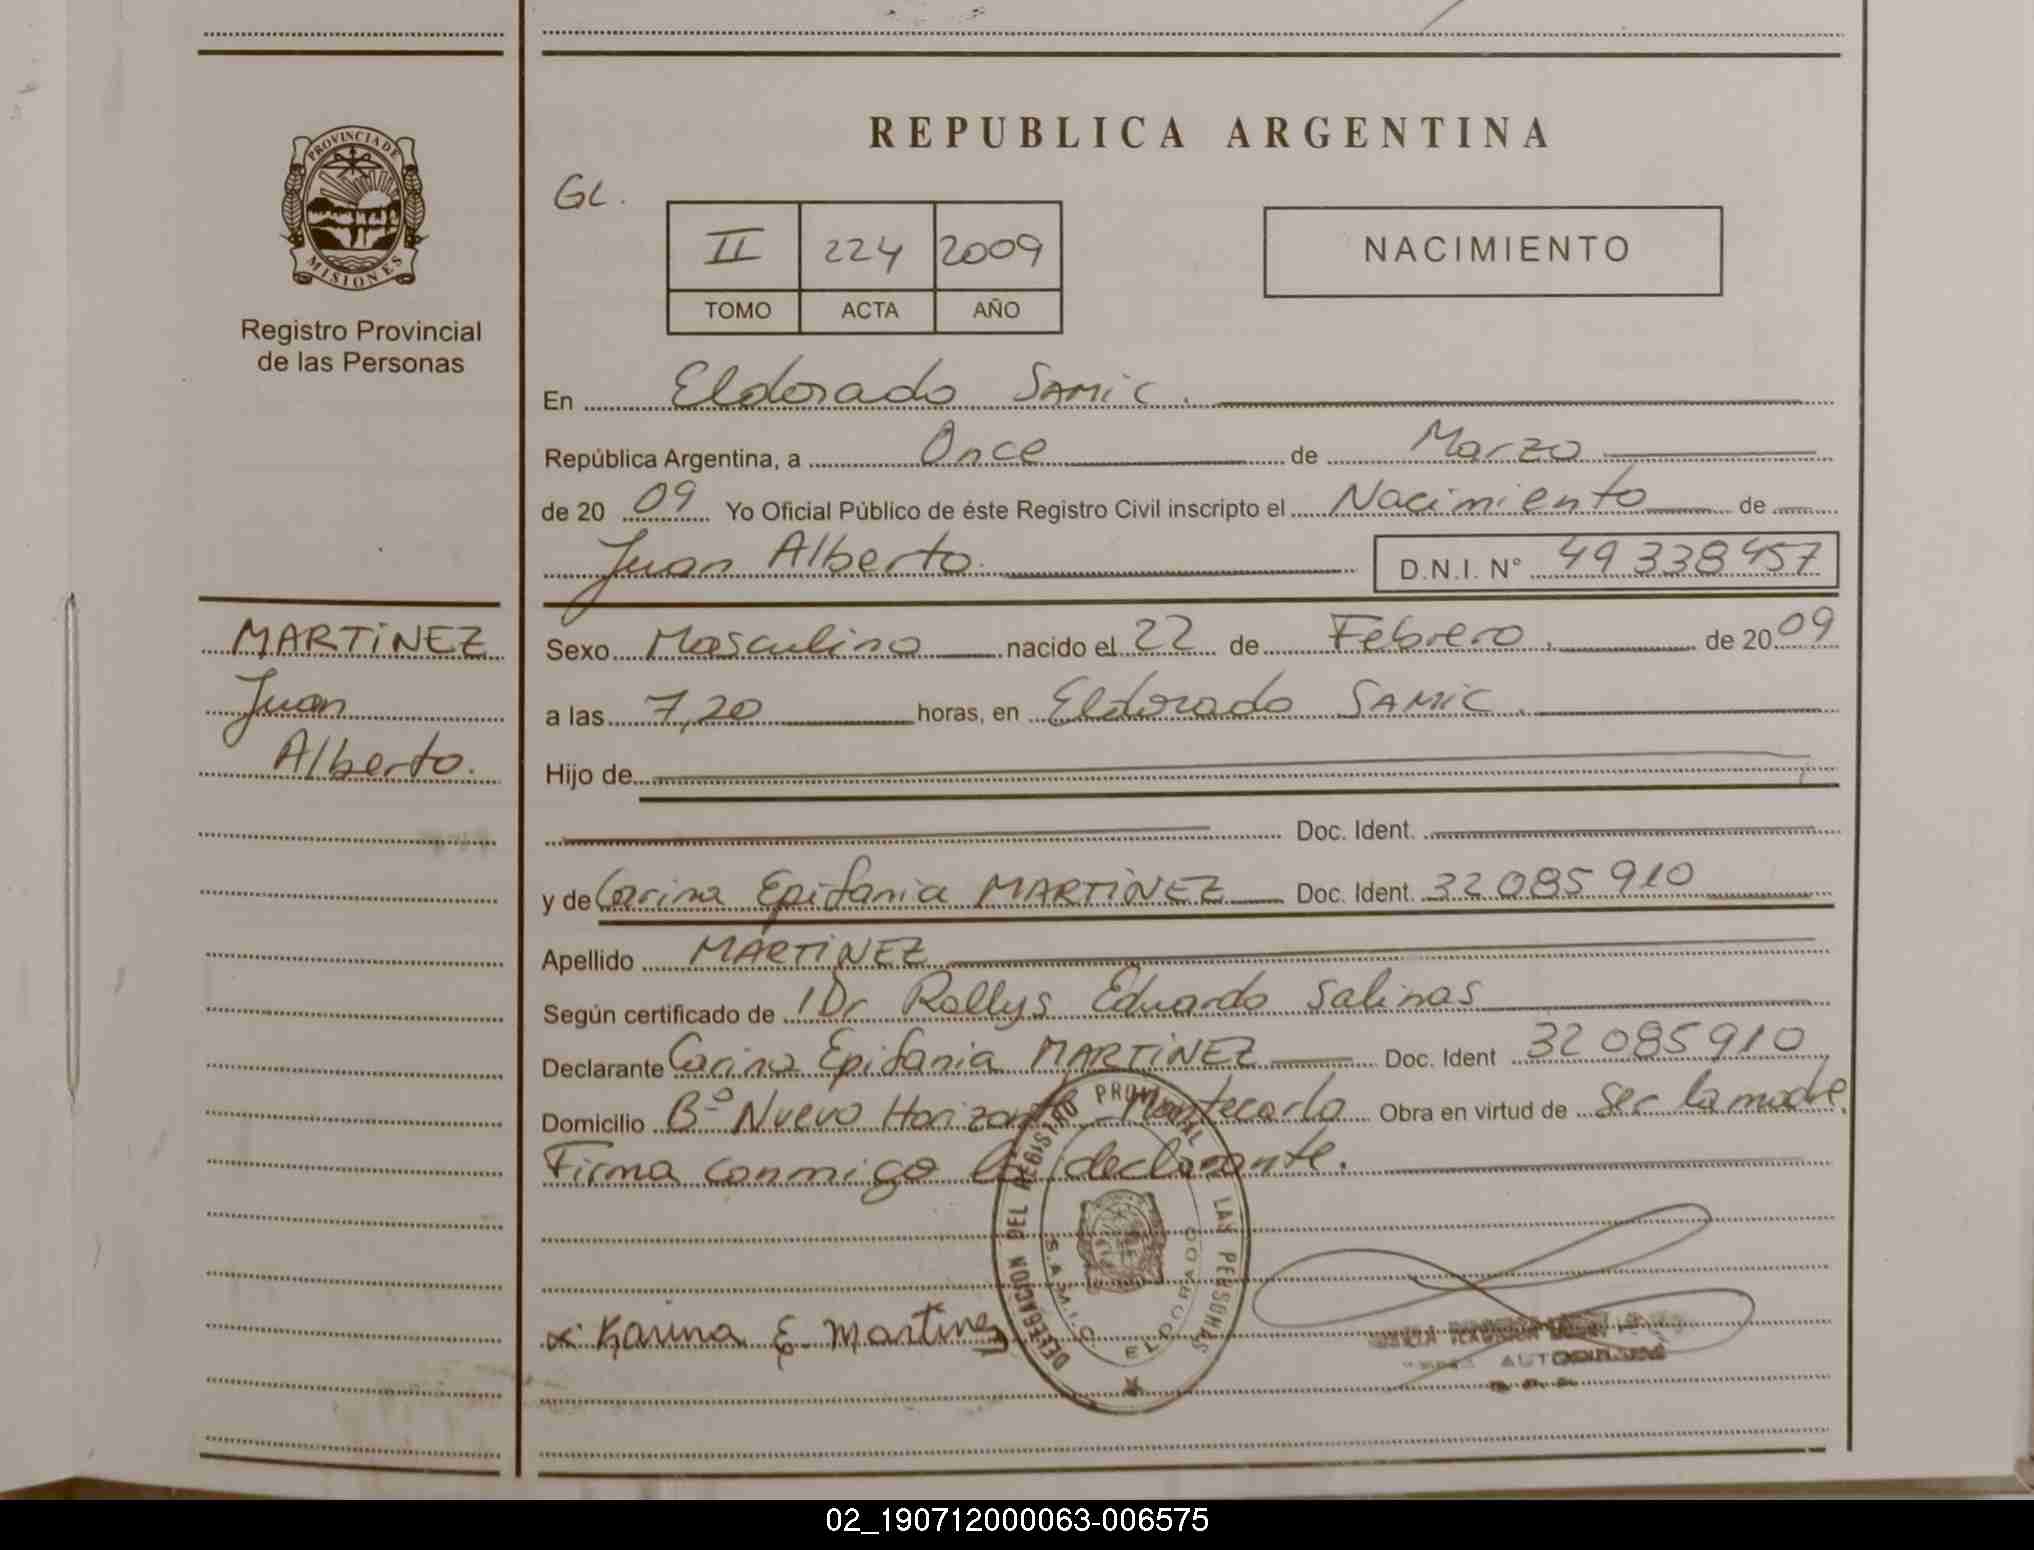 REPUBLICA ARGENTINA
PROVINCIA DE
MISIONES
Registro Provincial
de las Personas
GL.
II 224 2009
TOMO ACTA AÑO
NACIMIENTO
En Eldorado SAMIC.
República Argentina, a Once de Marzo
de 20 09 Yo Oficial Público de éste Registro Civil inscripto el Nacimiento de
Juan Alberto. D.N.I. N° 49 338 457
MARTINEZ
Juan
Alberto.
Sexo Masculino nacido el 22 de Febrero. de 20 09
a las 7,20 horas, en Eldorado SAMIC.
Hijo de
Doc. Ident.
y de Carina Epifania MARTINEZ Doc. Ident. 32 085 910
Apellido MARTINEZ
Según certificado de Dr Rollys Eduardo Salinas
Declarante Carina Epifania MARTINEZ Doc. Ident 32 085 910
Domicilio Bº Nuevo Horizonte Montecarlo Obra en virtud de ser la madre.
Firma conmigo la declarante.
DELEGACION DEL REGISTRO PROVINCIAL LAS PERSONAS
S.A.M.I.C. ELDORADO
x Karina E. Martinez
02_190712000063-006575